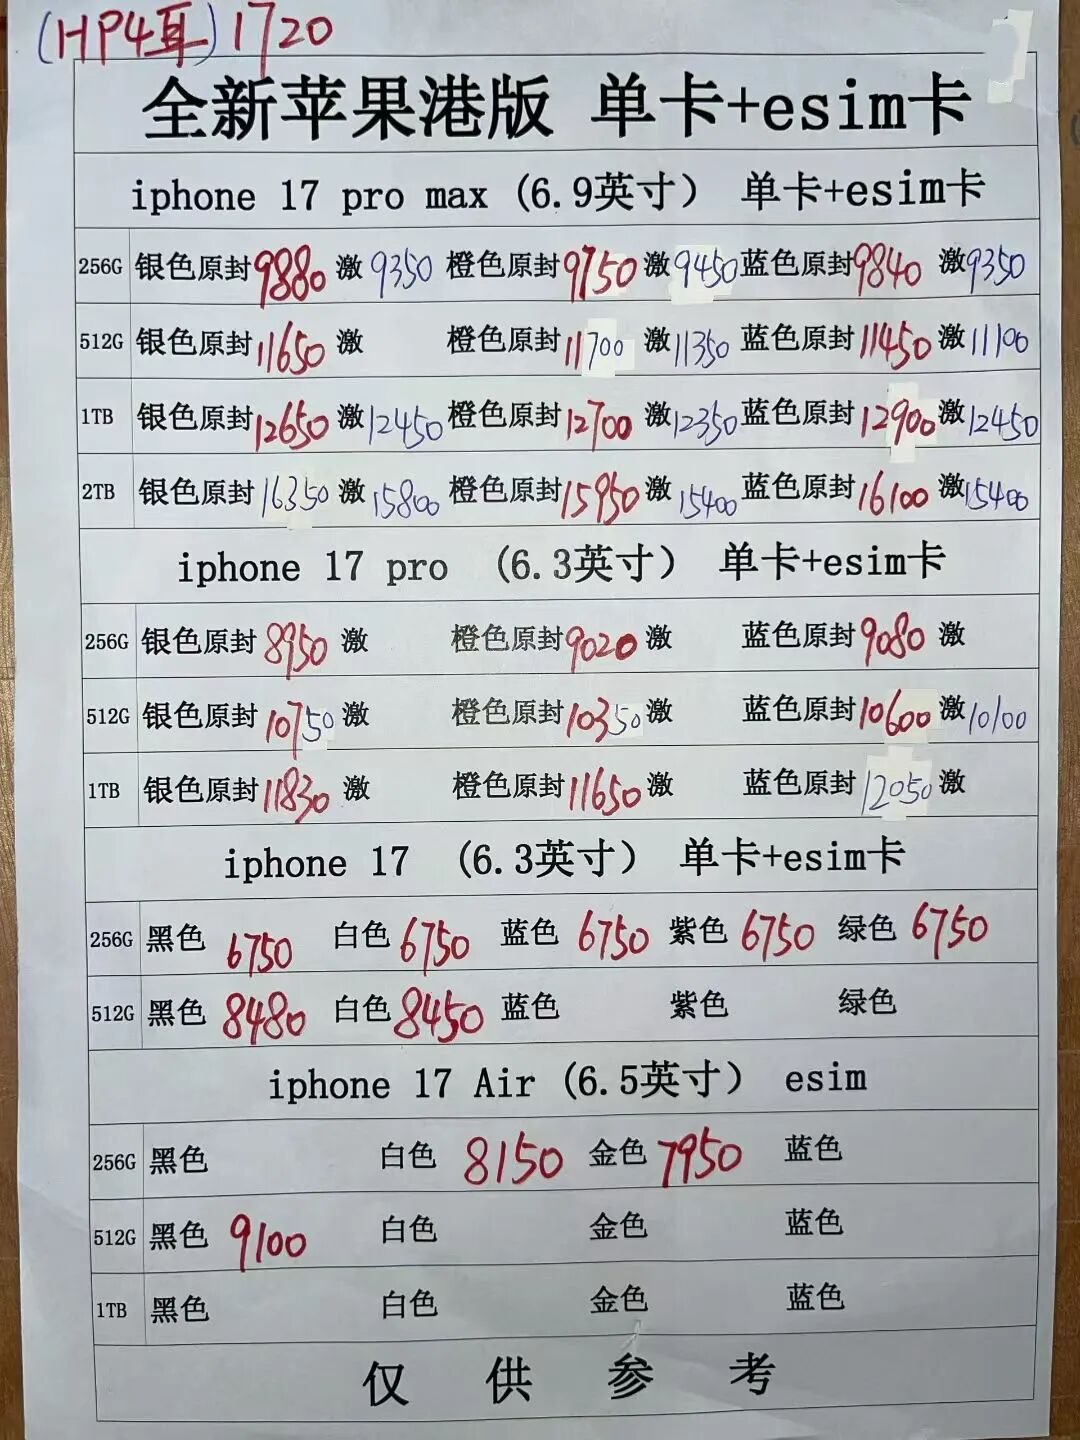 (HP4耳)1720
全新苹果港版 单卡+esim卡
iphone 17 pro max (6.9英寸) 单卡+esim卡
256G 银色原封9880 激9350 橙色原封9750 激9450 蓝色原封9840 激9350
512G 银色原封11650 激 橙色原封11700 激11350 蓝色原封11450 激11100
1TB 银色原封12650 激12450 橙色原封12700 激12350 蓝色原封12900 激12450
2TB 银色原封16350 激15800 橙色原封15950 激15400 蓝色原封16100 激15400
iphone 17 pro (6.3英寸) 单卡+esim卡
256G 银色原封8950 激 橙色原封9020 激 蓝色原封9080 激
512G 银色原封10750 激 橙色原封10350 激 蓝色原封10600 激10100
1TB 银色原封11830 激 橙色原封11650 激 蓝色原封12050 激
iphone 17 (6.3英寸) 单卡+esim卡
256G 黑色 6750 白色 6750 蓝色 6750 紫色 6750 绿色 6750
512G 黑色 8480 白色 8450 蓝色 紫色 绿色
iphone 17 Air (6.5英寸) esim
256G 黑色 白色 8150 金色 7950 蓝色
512G 黑色 9100 白色 金色 蓝色
1TB 黑色 白色 金色 蓝色
仅供参考